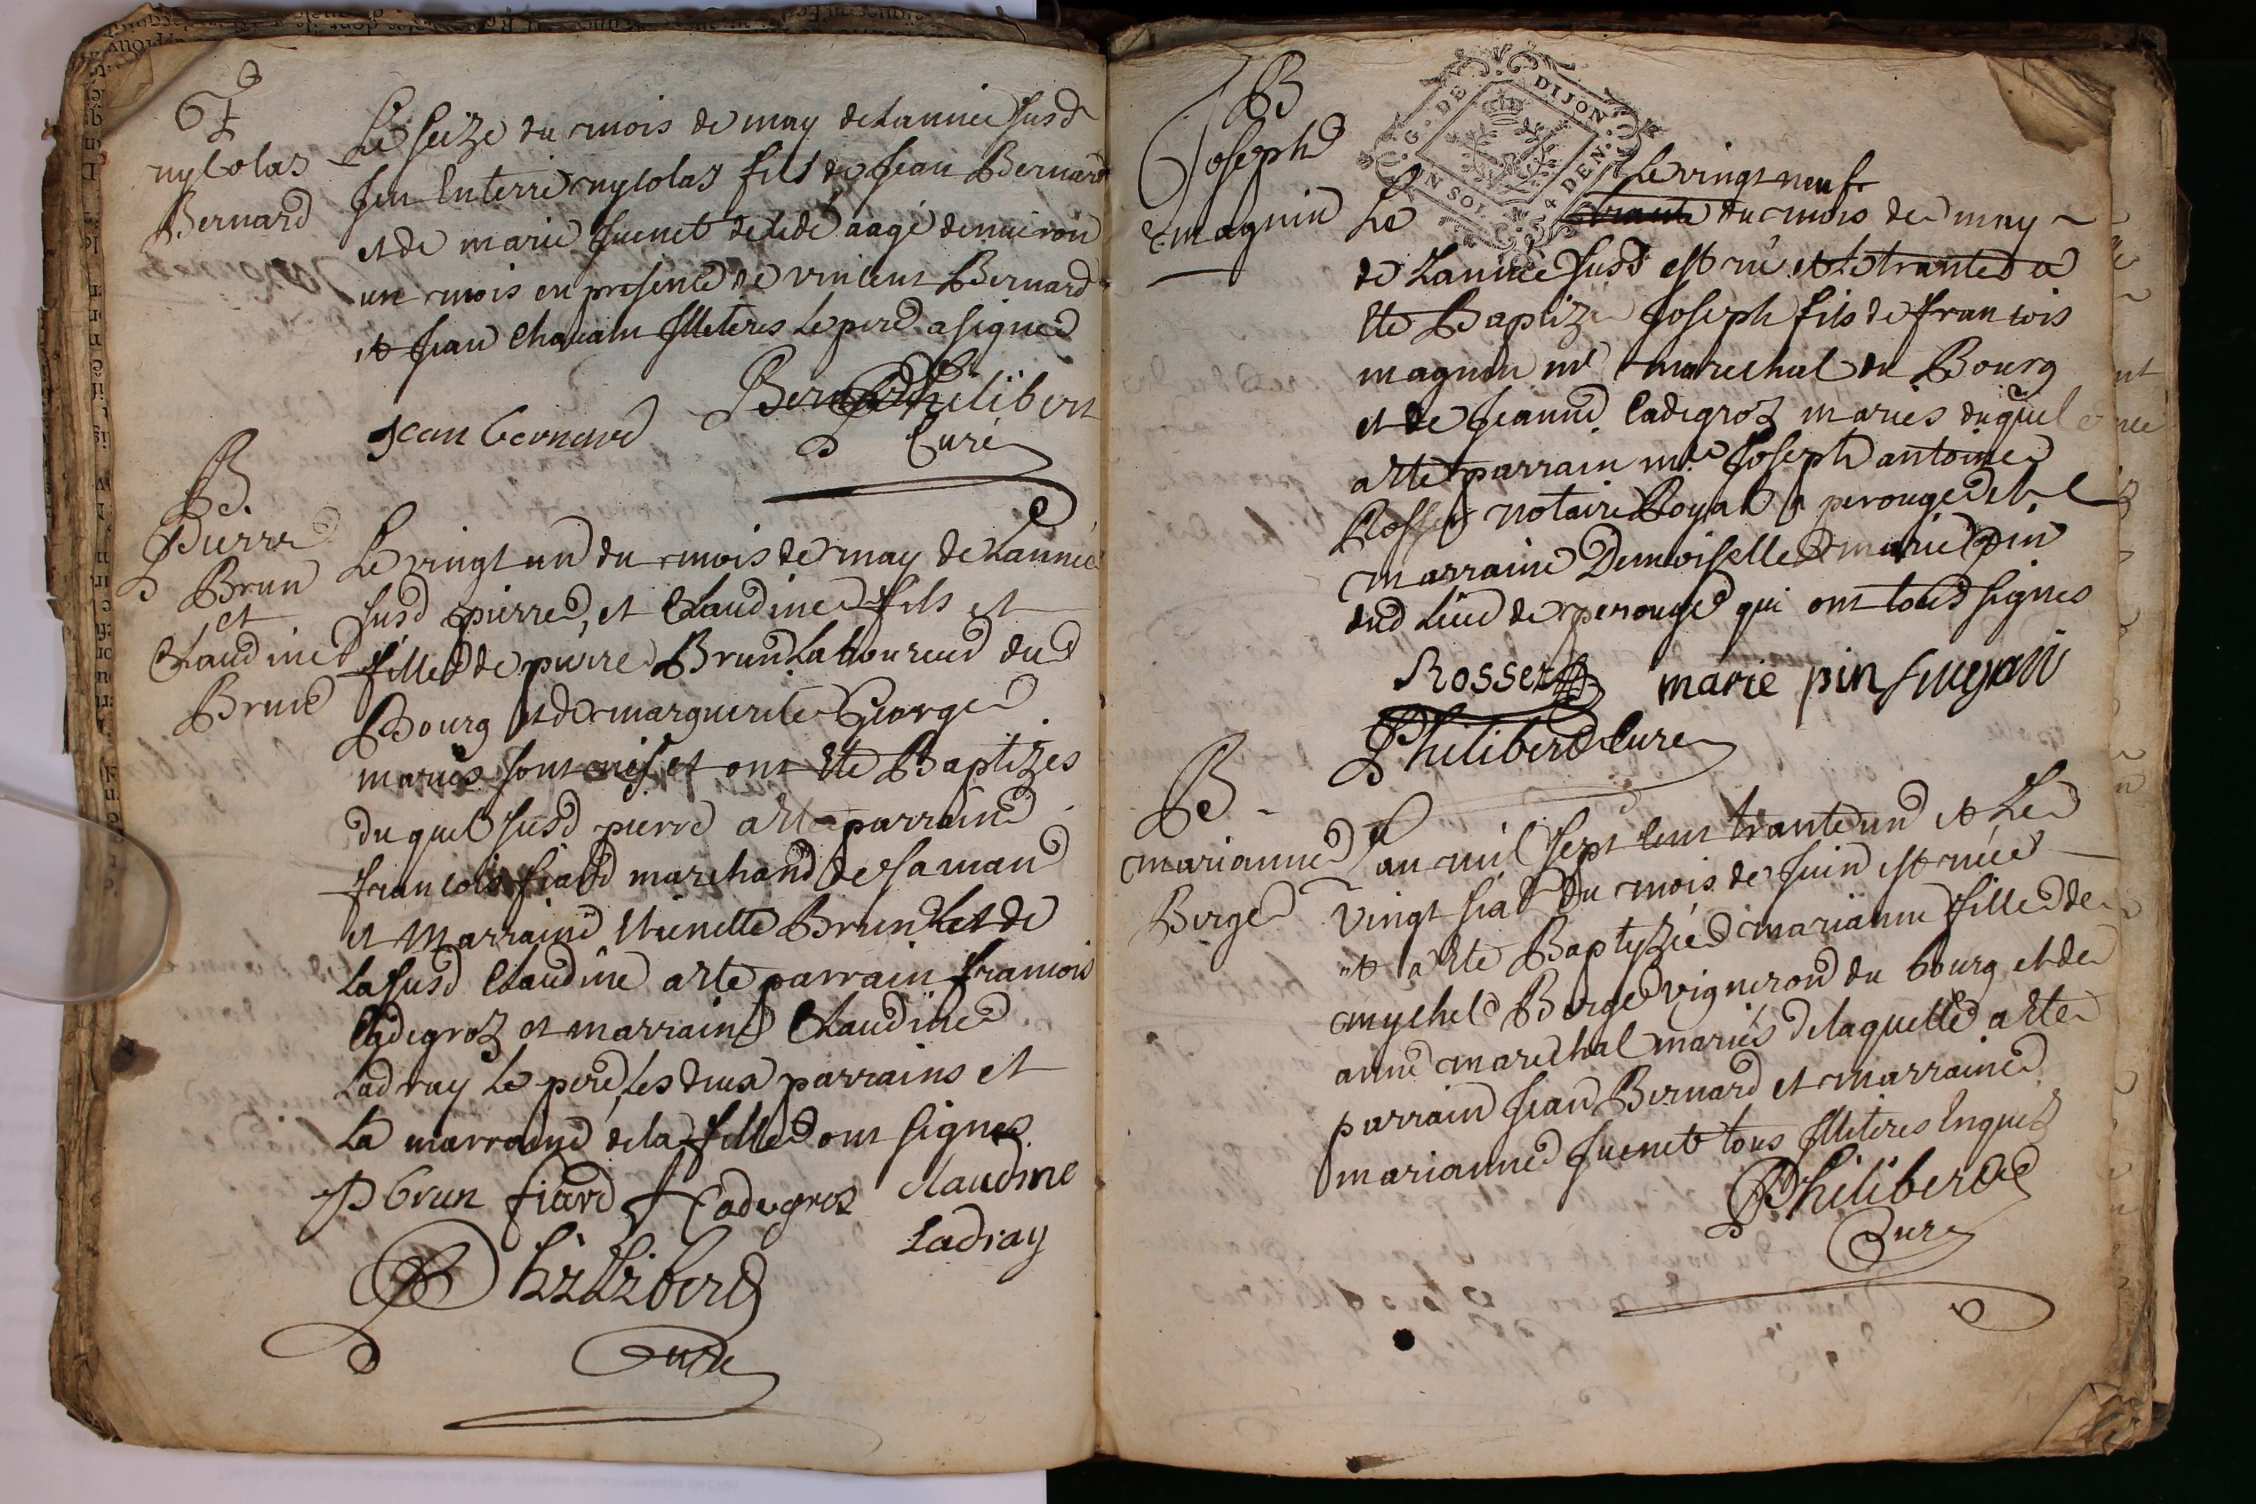 nycolas
Bernard
Le seize du mois de may de Lannée susd
fut Enterré nycolas fils de Jean Bernard
et de marie Juenet décédé aagé denuiron
un mois en presence de vincent Bernard
et Jean illiteres Le pere a signe
Bernard Philibert
Jean bernard Curé
B
Pierre
Brun
et
Claudine
Brune
Le vingt un du mois de may de Lannée
susd pierre, et Claudine fils et
fille de pierre Brun Laboureur du
Bourg et de marguerite George
mariés sont nés et ont Eté Baptizés
du quel susd pierre a Eté parrain
francois fiard marchand de
et Marraine Etienette Brun et de
La susd Claudine a ete parrain francois
Cadegroz et marraine Claudine
Ladray Le pere, Les deux parrains et
La marraine de la fille ont signes
P brun fiard f Cadegros claudine
Ladray
Philibert
Curé
B
Joseph
magnin
G. DE DIJON
UN SOL 4 DEN.
Le vingt neuf
Le trante du mois de may
de Lannée susd est né et le trante a
Ete Baptizé Joseph fils de francois
magnin me marechal du Bourg
et de Jeanne Cadegroz mariés duquel
a Ete parrain me Joseph antoine
Rosset notaire Royal a perouge et
marraine Demoiselle marie pin
dud Lieu de perouge qui ont tous signes
Rosset marie pin
Philibert Cure
B
marianne
Berge
L'an mil sept cent trante un et Le
vingt six du mois de Juin est née
et a Ete Baptyzée marianne fille de
mychel Berge vigneron du bourg et de
anne marechal mariés de laquelle a Ete
parrain Jean Bernard et marraine
marianne Juenet tous illiteres Enquis
Philibert
Curé